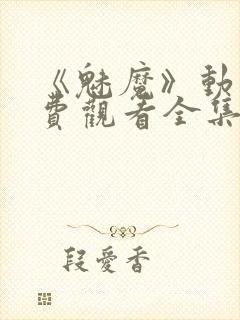 《魅魔》動
費觀看全集
段愛香